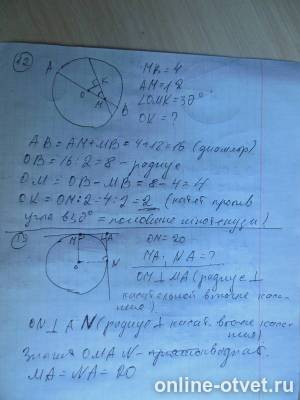 12
A
O
K
M
B
MB = 4
AM = 12
∠OMK = 30°
OK = ?
AB = AM + MB = 4 + 12 = 16 (диаметр)
OB = 16 : 2 = 8 - радиус
OM = OB - MB = 8 - 4 = 4
OK = OM : 2 = 4 : 2 = 2 (катет против
угла в 30° = половине гипотенузы)
M
A
O
N
OM = 20
MA; NA = ?
OM ⊥ MA (радиус ⊥
касательной в точке каса-
ния)
ON ⊥ AN (радиус ⊥ касат. в точке касa-
ния)
Значит OMAN -
MA = NA = 20
online-otvet.ru